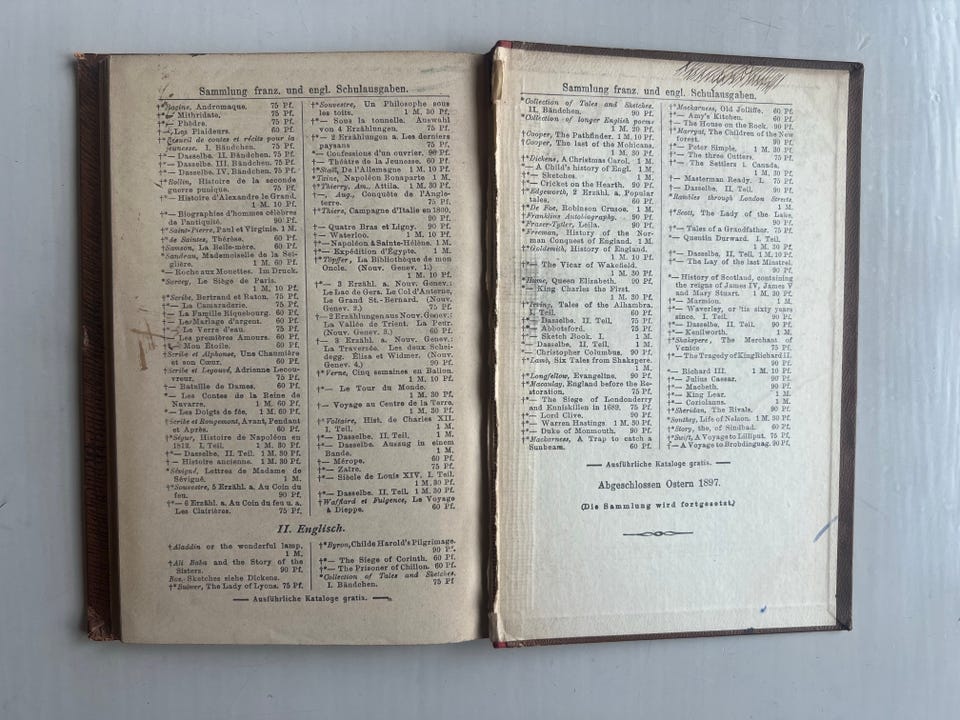 Sammlung franz. und engl. Schulausgaben.
†*Racine, Andromaque. 75 Pf.
†*— Mithridate. 75 Pf.
†*— Phèdre. 75 Pf.
†— Les Plaideurs. 60 Pf.
†*Recueil de contes et récits pour la
jeunesse. I. Bändchen. 75 Pf.
†*— Dasselbe. II. Bändchen. 75 Pf.
†*— Dasselbe. III. Bändchen. 75 Pf.
†*— Dasselbe. IV. Bändchen. 75 Pf.
†*Rollin, Histoire de la seconde
guerre punique. 75 Pf.
†*— Histoire d'Alexandre le Grand.
1 M. 10 Pf.
†*— Biographies d'hommes célèbres
de l'antiquité. 90 Pf.
†*Saint-Pierre, Paul et Virginie. 1 M.
†*de Saintes, Thérèse. 60 Pf.
*Samson, La Belle-mère. 60 Pf.
*Sandeau, Mademoiselle de la Sei-
glière. 1 M. 60 Pf.
*— Roche aux Mouettes. Im Druck.
*Sarcey, Le Siège de Paris.
1 M. 10 Pf.
†*Scribe, Bertrand et Raton. 75 Pf.
†*— La Camaraderie. 75 Pf.
†*— La Famille Riquebourg. 60 Pf.
†— Le Mariage d'argent. 60 Pf.
†*— Le Verre d'eau. 75 Pf.
†— Les premières Amours. 60 Pf.
†*— Mon Étoile. 60 Pf.
†Scribe et Alphonse, Une Chaumière
et son Cœur. 60 Pf.
†Scribe et Legouvé, Adrienne Lecou-
vreur. 75 Pf.
†— Bataille de Dames. 60 Pf.
*— Les Contes de la Reine de
Navarre. 1 M. 60 Pf.
*— Les Doigts de fée. 1 M. 60 Pf.
†Scribe et Rougemont, Avant, Pendant
et Après. 60 Pf.
†*Ségur, Histoire de Napoléon en
1812. I. Teil. 1 M. 30 Pf.
†*— Dasselbe. II. Teil. 1 M. 30 Pf.
†— Histoire ancienne. 1 M. 30 Pf.
*Sévigné, Lettres de Madame de
Sévigné. 1 M.
†*Souvestre, 5 Erzähl. a. Au Coin du
feu. 90 Pf.
†*— 6 Erzähl. a. Au Coin du feu u. a.
Les Clairières. 75 Pf.
†*Souvestre, Un Philosophe sous
les toits. 1 M. 30 Pf.
†*— Sous la tonnelle. Auswahl
von 4 Erzählungen. 75 Pf.
†*— 2 Erzählungen a. Les derniers
paysans 75 Pf.
*— Confessions d'un ouvrier. 90 Pf.
†— Théâtre de la Jeunesse. 60 Pf.
†*Staël, De l'Allemagne 1 M. 10 Pf.
*Taine, Napoléon Bonaparte 1 M.
†*Thierry, Am., Attila. 1 M. 30 Pf.
†—, Aug., Conquête de l'Angle-
terre. 75 Pf.
†*Thiers, Campagne d'Italie en 1800.
90 Pf.
†*— Quatre Bras et Ligny. 90 Pf.
†*— Waterloo. 1 M. 10 Pf.
†*— Napoléon à Sainte-Hélène. 1 M.
†*— Expédition d'Égypte. 1 M.
†*Töpffer, La Bibliothèque de mon
Oncle. (Nouv. Genev. 1.)
1 M. 10 Pf.
†*— 3 Erzähl. a. Nouv. Genev.:
Le Lac de Gers. Le Col d'Anterne.
Le Grand St.-Bernard. (Nouv.
Genev. 2.) 75 Pf.
†— 2 Erzählungen aus Nouv. Genev.:
La Vallée de Trient. La Peur.
(Nouv. Genev. 3.) 60 Pf.
†— 3 Erzähl. a. Nouv. Genev.:
La Traversée. Les deux Schei-
degg. Élisa et Widmer. (Nouv.
Genev. 4.) 90 Pf.
†*Verne, Cinq semaines en Ballon.
1 M. 10 Pf.
†*— Le Tour du Monde.
1 M. 30 Pf.
†— Voyage au Centre de la Terre.
1 M. 30 Pf.
†*Voltaire, Hist. de Charles XII.
I. Teil. 1 M.
†*— Dasselbe. II. Teil. 1 M.
†*— Dasselbe. Auszug in einem
Bande. 1 M.
†— Mérope. 60 Pf.
†*— Zaïre. 75 Pf.
†*— Siècle de Louis XIV. I. Teil.
1 M. 30 Pf.
†*— Dasselbe. II. Teil. 1 M. 30 Pf.
†Wafflard et Fulgence, Le Voyage
à Dieppe. 60 Pf.
II. Englisch.
†Aladdin or the wonderful lamp.
1 M.
†Ali Baba and the Story of the
Sisters. 90 Pf.
Boz, Sketches siehe Dickens.
†*Bulwer, The Lady of Lyons. 75 Pf.
†*Byron, Childe Harold's Pilgrimage.
90 Pf.
†*— The Siege of Corinth. 60 Pf.
†*— The Prisoner of Chillon. 60 Pf.
*Collection of Tales and Sketches.
I. Bändchen. 75 Pf
— Ausführliche Kataloge gratis. —
Sammlung franz. und engl. Schulausgaben.
*Collection of Tales and Sketches.
II. Bändchen. 90 Pf.
*Collection of longer English poems
1 M. 20 Pf.
†*Cooper, The Pathfinder. 1 M. 10 Pf.
†Cooper, The last of the Mohicans.
1 M. 30 Pf.
†*Dickens, A Christmas Carol. 1 M.
†— A Child's history of Engl. 1 M.
†*— Sketches. 1 M.
†*— Cricket on the Hearth. 90 Pf.
†*Edgeworth, 2 Erzähl. a. Popular
tales. 60 Pf.
†*De Foe, Robinson Crusoe. 1 M.
†*Franklins Autobiography. 90 Pf.
†*Fraser-Tytler, Leila. 90 Pf.
*Freeman, History of the Nor-
man Conquest of England. 1 M.
†*Goldsmith, History of England.
1 M. 10 Pf.
†*— The Vicar of Wakefield.
1 M. 30 Pf.
*Hume, Queen Elizabeth. 90 Pf.
*— King Charles the First.
1 M. 30 Pf.
†*Irving, Tales of the Alhambra.
I. Teil. 60 Pf.
†*— Dasselbe. II. Teil. 75 Pf.
†*— Abbotsford. 75 Pf.
†*— Sketch Book. I. 1 M.
†*— Dasselbe. II. Teil. 1 M.
†*— Christopher Columbus. 90 Pf.
†*Lamb, Six Tales from Shakspere.
1 M.
†*Longfellow, Evangeline. 90 Pf.
†*Macaulay, England before the Re-
storation. 75 Pf.
†*— The Siege of Londonderry
and Enniskillen in 1689. 75 Pf.
†*— Lord Clive. 90 Pf.
†*— Warren Hastings 1 M. 30 Pf.
†*— Duke of Monmouth. 90 Pf.
†*Mackarness, A Trap to catch a
Sunbeam. 60 Pf.
†*Mackarness, Old Jolliffe. 60 Pf.
†*— Amy's Kitchen. 60 Pf.
†*— The House on the Rock. 90 Pf.
†*Marryat, The Children of the New
forest. 90 Pf.
†*— Peter Simple. 1 M. 30 Pf.
†*— The three Cutters. 75 Pf.
†*— The Settlers i. Canada.
1 M. 30 Pf.
†— Masterman Ready. I. 75 Pf.
†— Dasselbe. II. Teil. 90 Pf.
*Rambles through London Streets.
1 M.
†*Scott, The Lady of the Lake.
90 Pf.
†*— Tales of a Grandfather. 75 Pf.
†*— Quentin Durward. I. Teil.
1 M. 30 Pf.
†*— Dasselbe, II. Teil. 1 M. 10 Pf.
†*— The Lay of the last Minstrel.
90 Pf.
*— History of Scotland, containing
the reigns of James IV, James V
and Mary Stuart. 1 M. 30 Pf.
†*— Marmion. 1 M.
†*— Waverley, or 'tis sixty years
since. I. Teil. 90 Pf.
†*— Dasselbe. II. Teil. 90 Pf.
†*— Kenilworth. 1 M.
†*Shakspere, The Merchant of
Venice 75 Pf.
†*— The Tragedy of King Richard II.
90 Pf.
*— Richard III. 1 M. 10 Pf.
†*— Julius Caesar. 90 Pf.
†*— Macbeth. 90 Pf.
†*— King Lear. 1 M.
†*— Coriolanus. 1 M.
†*Sheridan, The Rivals. 90 Pf.
*Southey, Life of Nelson. 1 M. 30 Pf.
†*Story, the, of Sindbad. 60 Pf.
†*Swift, A Voyage to Lilliput. 75 Pf.
†— A Voyage to Brobdingnag. 90 Pf.
— Ausführliche Kataloge gratis. —
Abgeschlossen Ostern 1897.
(Die Sammlung wird fortgesetzt.)